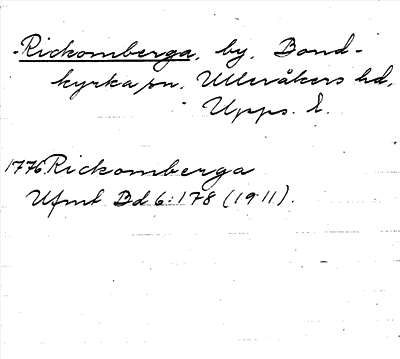 -Rickomberga, by, Bond-
kyrka sn. Ulleråkers hd,
Upps. l.
1776 Rickomberga
Ufmt Bd 6:178 (1911).